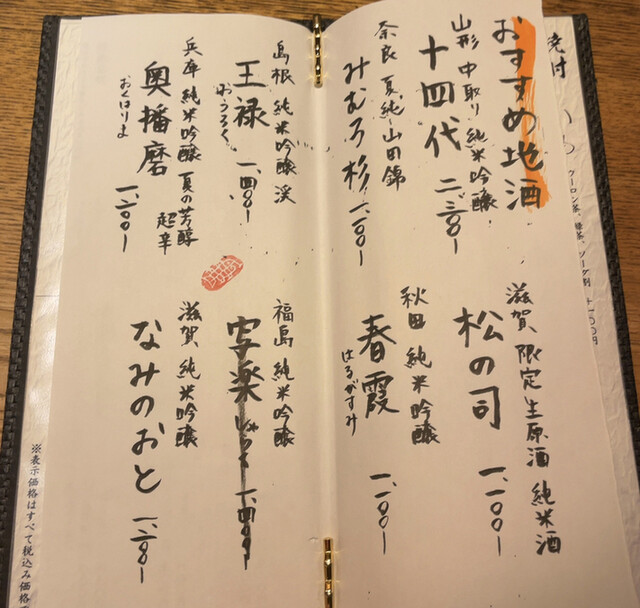 おすすめ地酒
山形 中取り 純米吟醸
十四代 二、三〇〇ー
奈良 夏純 山田錦
みむろ杉 一、一〇〇ー
滋賀 限定生原酒 純米酒
松の司 一、一〇〇ー
秋田 純米吟醸
春霞 一、一〇〇ー
はるがすみ
島根 純米吟醸 渓
王禄 一、四〇〇ー
おうろく
兵庫 純米吟醸 夏の芳醇
超辛
奥播磨 一、二〇〇ー
おくはりま
福島 純米吟醸
写楽 しゃらく 一、四〇〇ー
滋賀 純米吟醸
なみのおと 一、二〇〇ー
ウーロン茶、緑茶、ソーダ割
※表示価格はすべて税込み価格